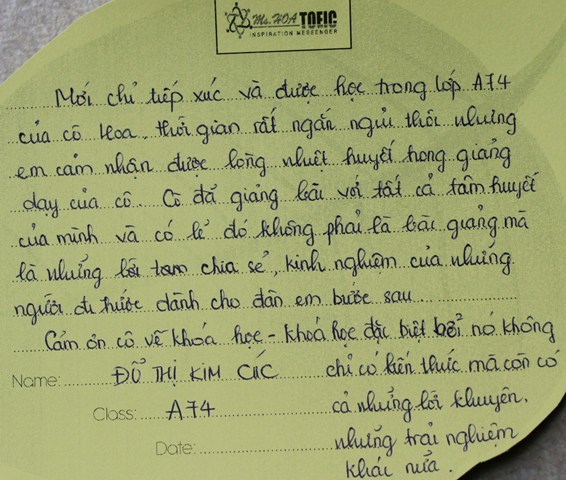 Ms. HOA TOEIC
INSPIRATION MESSENGER
Mới chỉ tiếp xúc và được học trong lớp A74
của cô Hoa, thời gian rất ngắn ngủi thôi nhưng
em cảm nhận được lòng nhiệt huyết trong giảng
dạy của cô. Cô đã giảng bài với tất cả tâm huyết
của mình và có lẽ đó không phải là bài giảng mà
là những lời tâm chia sẻ, kinh nghiệm của những
người đi trước dành cho đàn em bước sau.
Cảm ơn cô về khóa học - khoá học đặc biệt bởi nó không
Name: ĐỖ THỊ KIM CÚC chỉ có kiến thức mà còn có
Class: A74 cả những lời khuyên,
Date: những trải nghiệm
khác nữa.